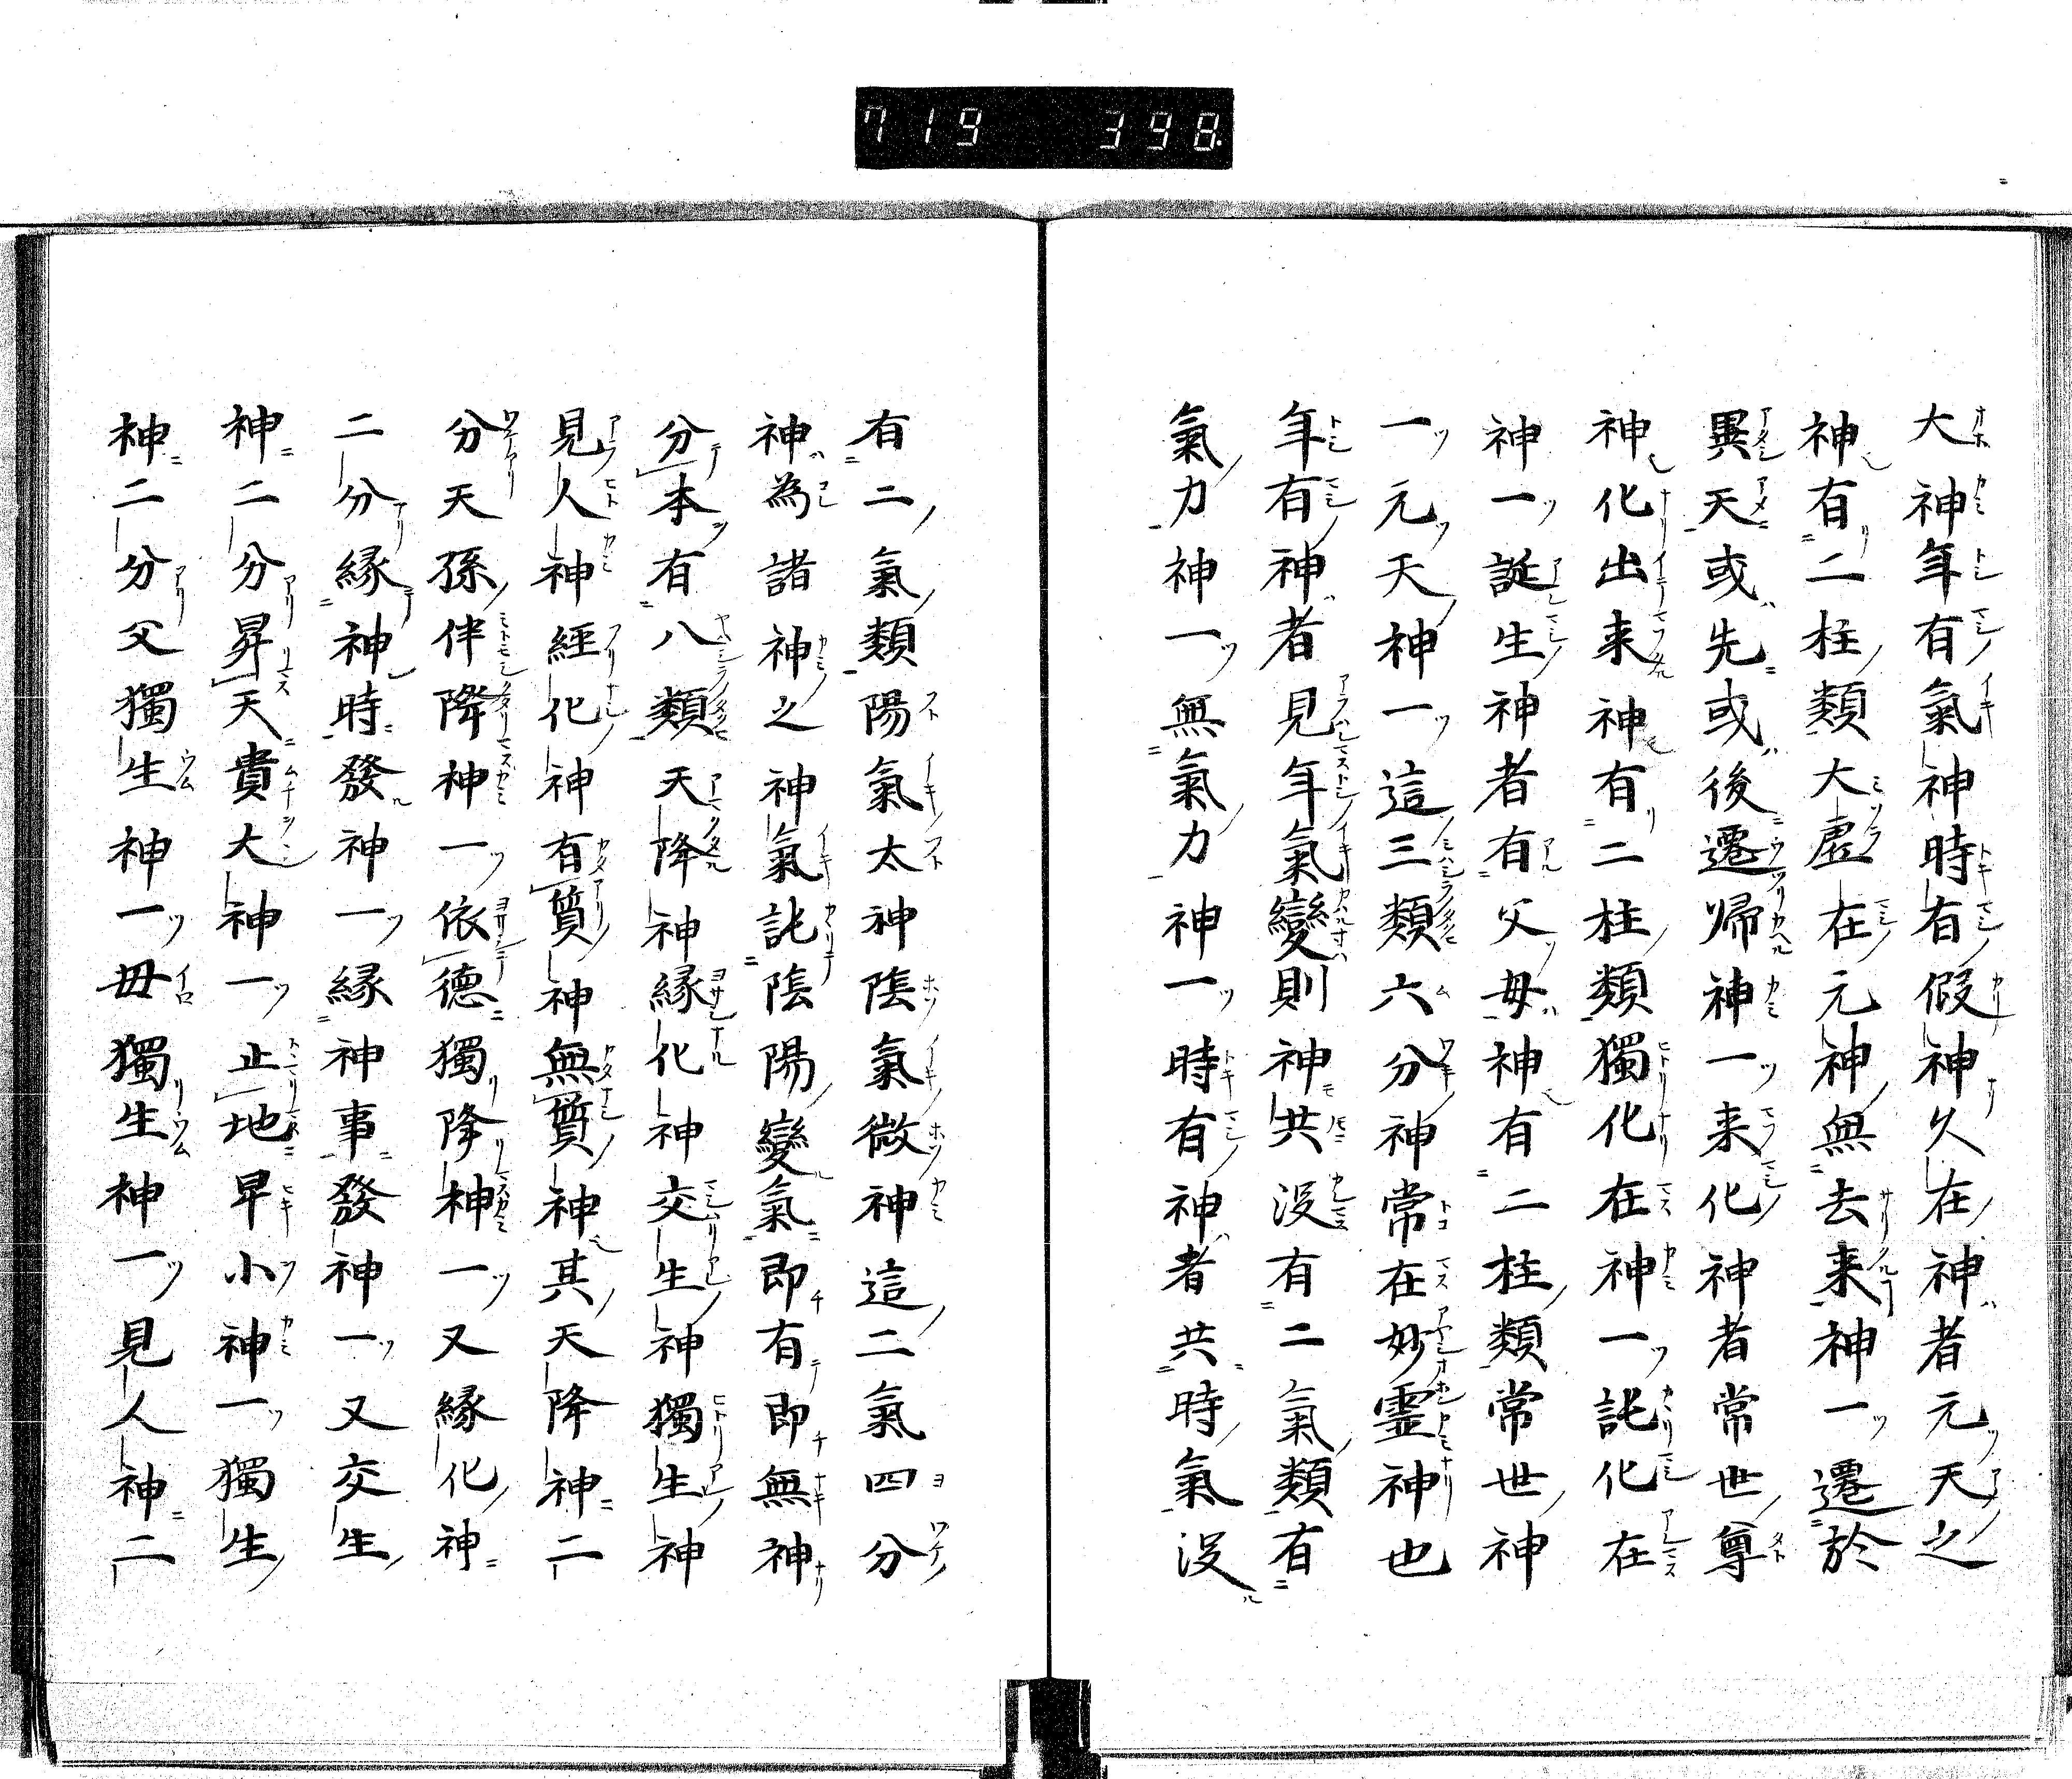 719 398
大神年有氣神時有假神久在神者元天之
神有二柱類大虛在元神無去来神一遷於
異天或先或後遷帰神一来化神者常世尊
神化出来神有二柱類獨化在神一託化在
神一誕生神者有父母神有二柱類常世神
一元天神一這三類六分神常在妙霊神也
年有神者見年氣變則神共没有二氣類有
氣力神一無氣力神一時有神者共時氣没
有二氣類陽氣太神陰氣微神這二氣四分
神為諸神之神氣託陰陽變氣即有即無神
分本有八類天降神縁化神交生神獨生神
見人神經化神有質神無質神其天降神二
分天孫伴降神一依德獨降神一又縁化神
二分縁神時發神一縁神事發神一又交生
神二分昇天貴大神一止地早小神一獨生
神二分父獨生神一母獨生神一見人神二